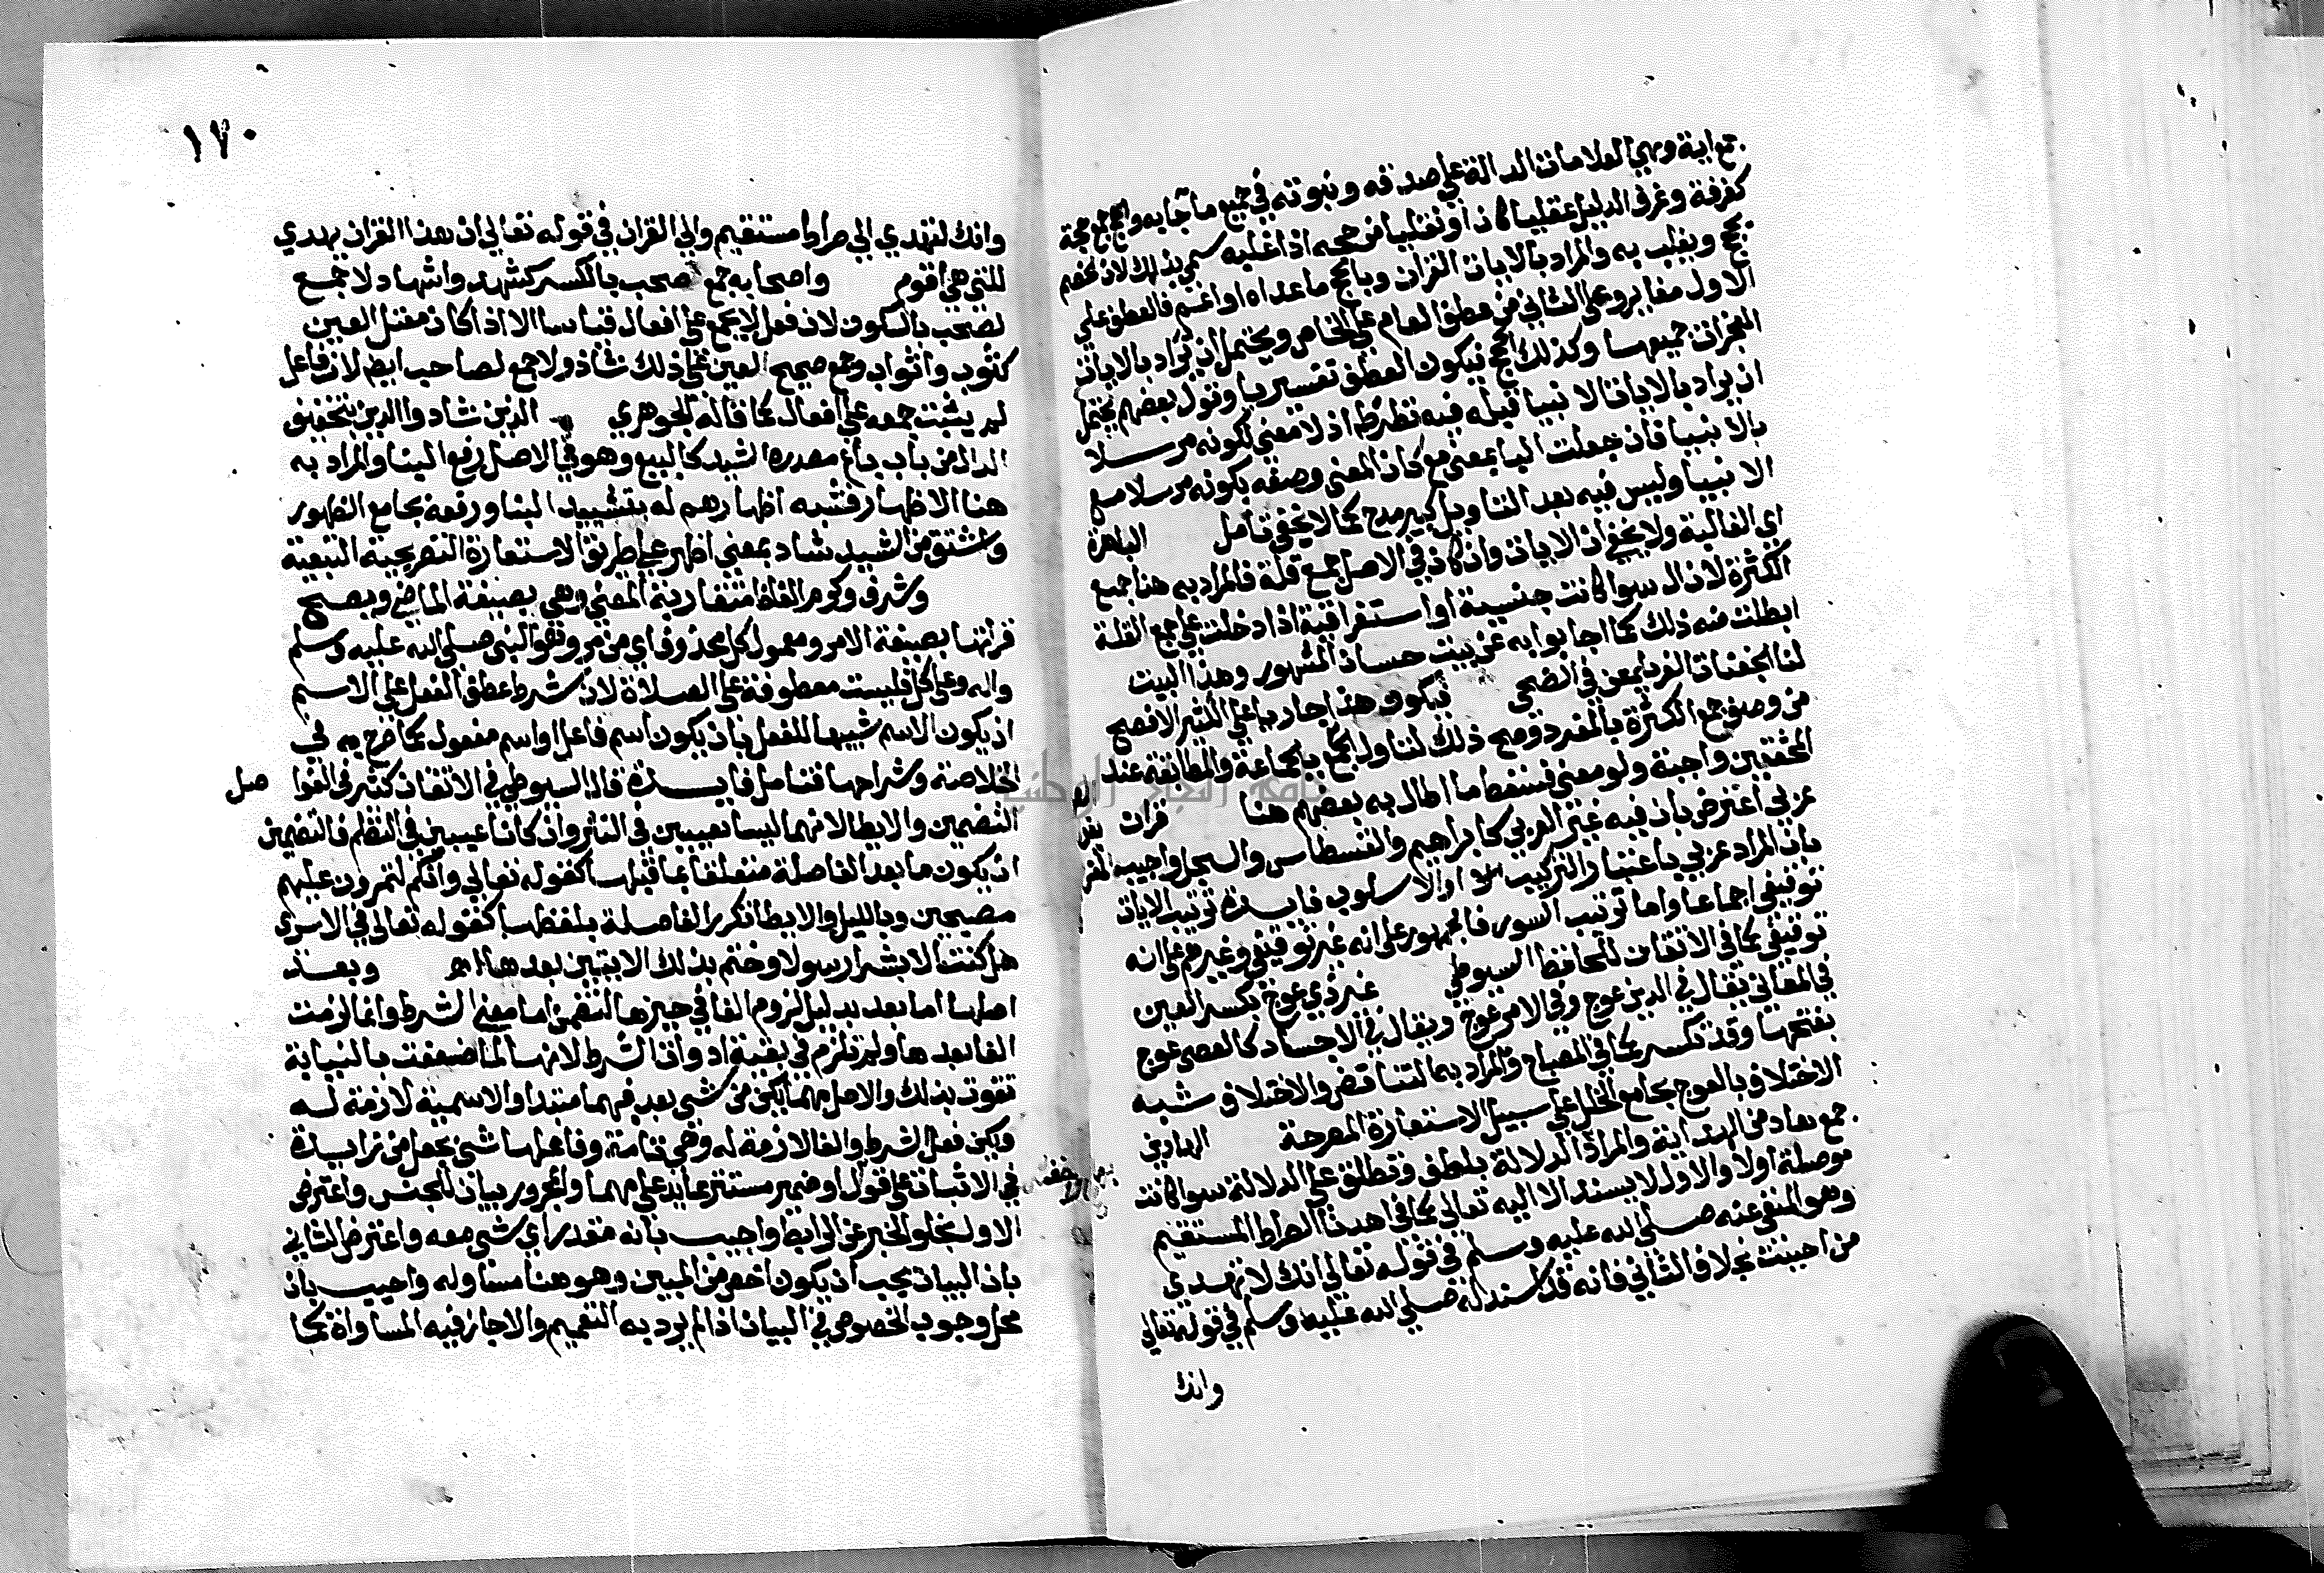 جمع اية وهي العلامات الدالة على صدقه ونبوته في جميع ما جا به والحجج جمع حجة
كغرفة وغرف الدليل عقليا كان او نقليا من حجه اذا غلبه سمي بذلك لان الخصم
يحج ويغلب به والمراد بالايات القران وبالحجج ما عداه او اعم فالعطف على
الاول مغاير وعلى الثاني من عطف العام على الخاص ويحتمل ان يراد بالايات
المعجزات جميعها وكذلك الحجج فيكون العطف تفسيريا وقول بعضهم يحتمل
ان يراد بالايات الانبيا قبله فيه نظر ظم اذ لا معنى لكونه مرسلا
بالانبيا فان جعلت البا بمعنى مع كان المعنى وصفه بكونه مرسلا مع
الانبيا وليس فيه بعد التاويل كبير مدح كما لا يخفى تامل الباهرة
اي الغالبة ولا يخفى ان الايات وان كان في الاصل جمع قلة فالمراد به هنا جمع
الكثرة لان ال سوا كانت جنسية او استغراقية اذا دخلت على جمع القلة
ابطلت منه ذلك كما اجابوا به عن بيت حسان المشهور وهذا البيت
لنا الجفنات الغر يلمعن في الضحى فيكون هذا جاريا على الكثير الافصح
من وصف جمع الكثرة بالمفرد وصح ذلك لتاول الجمع بالجماعة والمطابقة عند
المحققين واجبة ولو معنى فسقط ما اطال به بعضهم هنا قران
عربي اعترض بان فيه غير العربي كابراهيم والقسطاس والسجل واجيب
بان المراد عربي باعتبار التركيب او الاسلوب فايدة ترتيب الايات
توقيفي اجماعا واما ترتيب السور فالجمهور على انه غير توقيفي وغيرهم على انه
توقيفي كما في الاتقان للحافظ السيوطي غير ذي عوج بكسر العين
في المعاني يقال في الدين عوج وفي الامر عوج ويقال في الاجساد كالعصى عوج
بفتحها وقد تكسر كما في المصباح والمراد به التناقض والاختلاف شبه
الاختلاف بالعوج بجامع الخلل على سبيل الاستعارة المصرحة الهادين
جمع هاد من الهداية والمراد الدلالة بلطف وتطلق على الدلالة سوا كانت
موصلة اولا والاول لا يسند الا اليه تعالى كما في اهدنا الصراط المستقيم
وهو المنفي عنه صلى الله عليه وسلم في قوله تعالى انك لا تهدي
من احببت بخلاف الثاني فانه قد اسند له صلى الله عليه وسلم في قوله تعالى
وانك
١٧٠
وانك لتهدي الى صراط مستقيم والى القران في قوله تعالى ان هذا القران يهدي
للتي هي اقوم واصحابه جمع صحب بالكسر كشهد واشهاد لا جمع
لصحب بالسكون لان فعل لا يجمع على افعال قياسا الا اذا كان معتل العين
كثوب واثواب وجمع صحيح العين على ذلك شاذ ولا جمع لصاحب ايضا لان فاعل
لم يثبت جمعه على افعال كما قاله الجوهري الذين شادوا الدين بتخفيف
الدال من باب باع مصدره الشيد كالبيع وهو في الاصل رفع البنا والمراد به
هنا الاظهار فشبه اظهارهم له بتشييد البنا ورفعه بجامع الظهور
واشتق من الشيد شاد بمعنى اظهر على طريق الاستعارة التصريحية التبعية
وشرف وكرم الفاظ متقاربة المعنى وهي بصيغة الماضي ويصح
قراتها بصيغة الامر ومعمول كل محذوف اي من مر وهو النبي صلى الله عليه وسلم
واله وعلى كل فليست معطوفة على الصلاة لان شرط عطف الفعل على الاسم
ان يكون الاسم شبيها للفعل بان يكون اسم فاعل او اسم مفعول كما صرح به في
الخلاصة وشراحها فتامل فايدة قال السيوطي في الاتقان كثر في الفوا صل
التضمين والايطا لانهما ليسا بعيبين في النثر وان كانا عيبين في النظم فالتضمين
ان يكون ما بعد الفاصلة متعلقا بما قبلها كقوله تعالى وانكم لتمرون عليهم
مصبحين وبالليل والايطا تكرر الفاصلة بلفظها كقوله تعالى في الاسرى
هل كنت الا بشرا رسولا وختم بذلك الايتين بعدها اهـ وبعد
اصلها اما بعد بدليل لزوم الفا في حيزها لتضمن اما معنى الشرط وانما لزمت
الفا بعدها ولم تلزم في بقية ادوات الشرط لانها لما ضعفت بالنيابة
تقوت بذلك والاصل مهما يكن من شي بعد فمهما مبتدا والاسمية لازمة له
ويكن فعل الشرط والفا لازمة له وهي تامة وفاعلها شي بجعل من زايدة
في الاثبات على قول او ضمير مستتر عايد على مهما والمجرور بيان للجنس واعترض
الاول بخلو الخبر عن الرابط واجيب بانه مقدر اي شي معه واعترض الثاني
بان البيان يجب ان يكون اخص من المبين وهو هنا مساو له واجيب بان
محل وجوب الخصوص في البيان اذا لم يرد به التعميم والا جاز فيه المساواة كما
جامعة النجاح الوطنية